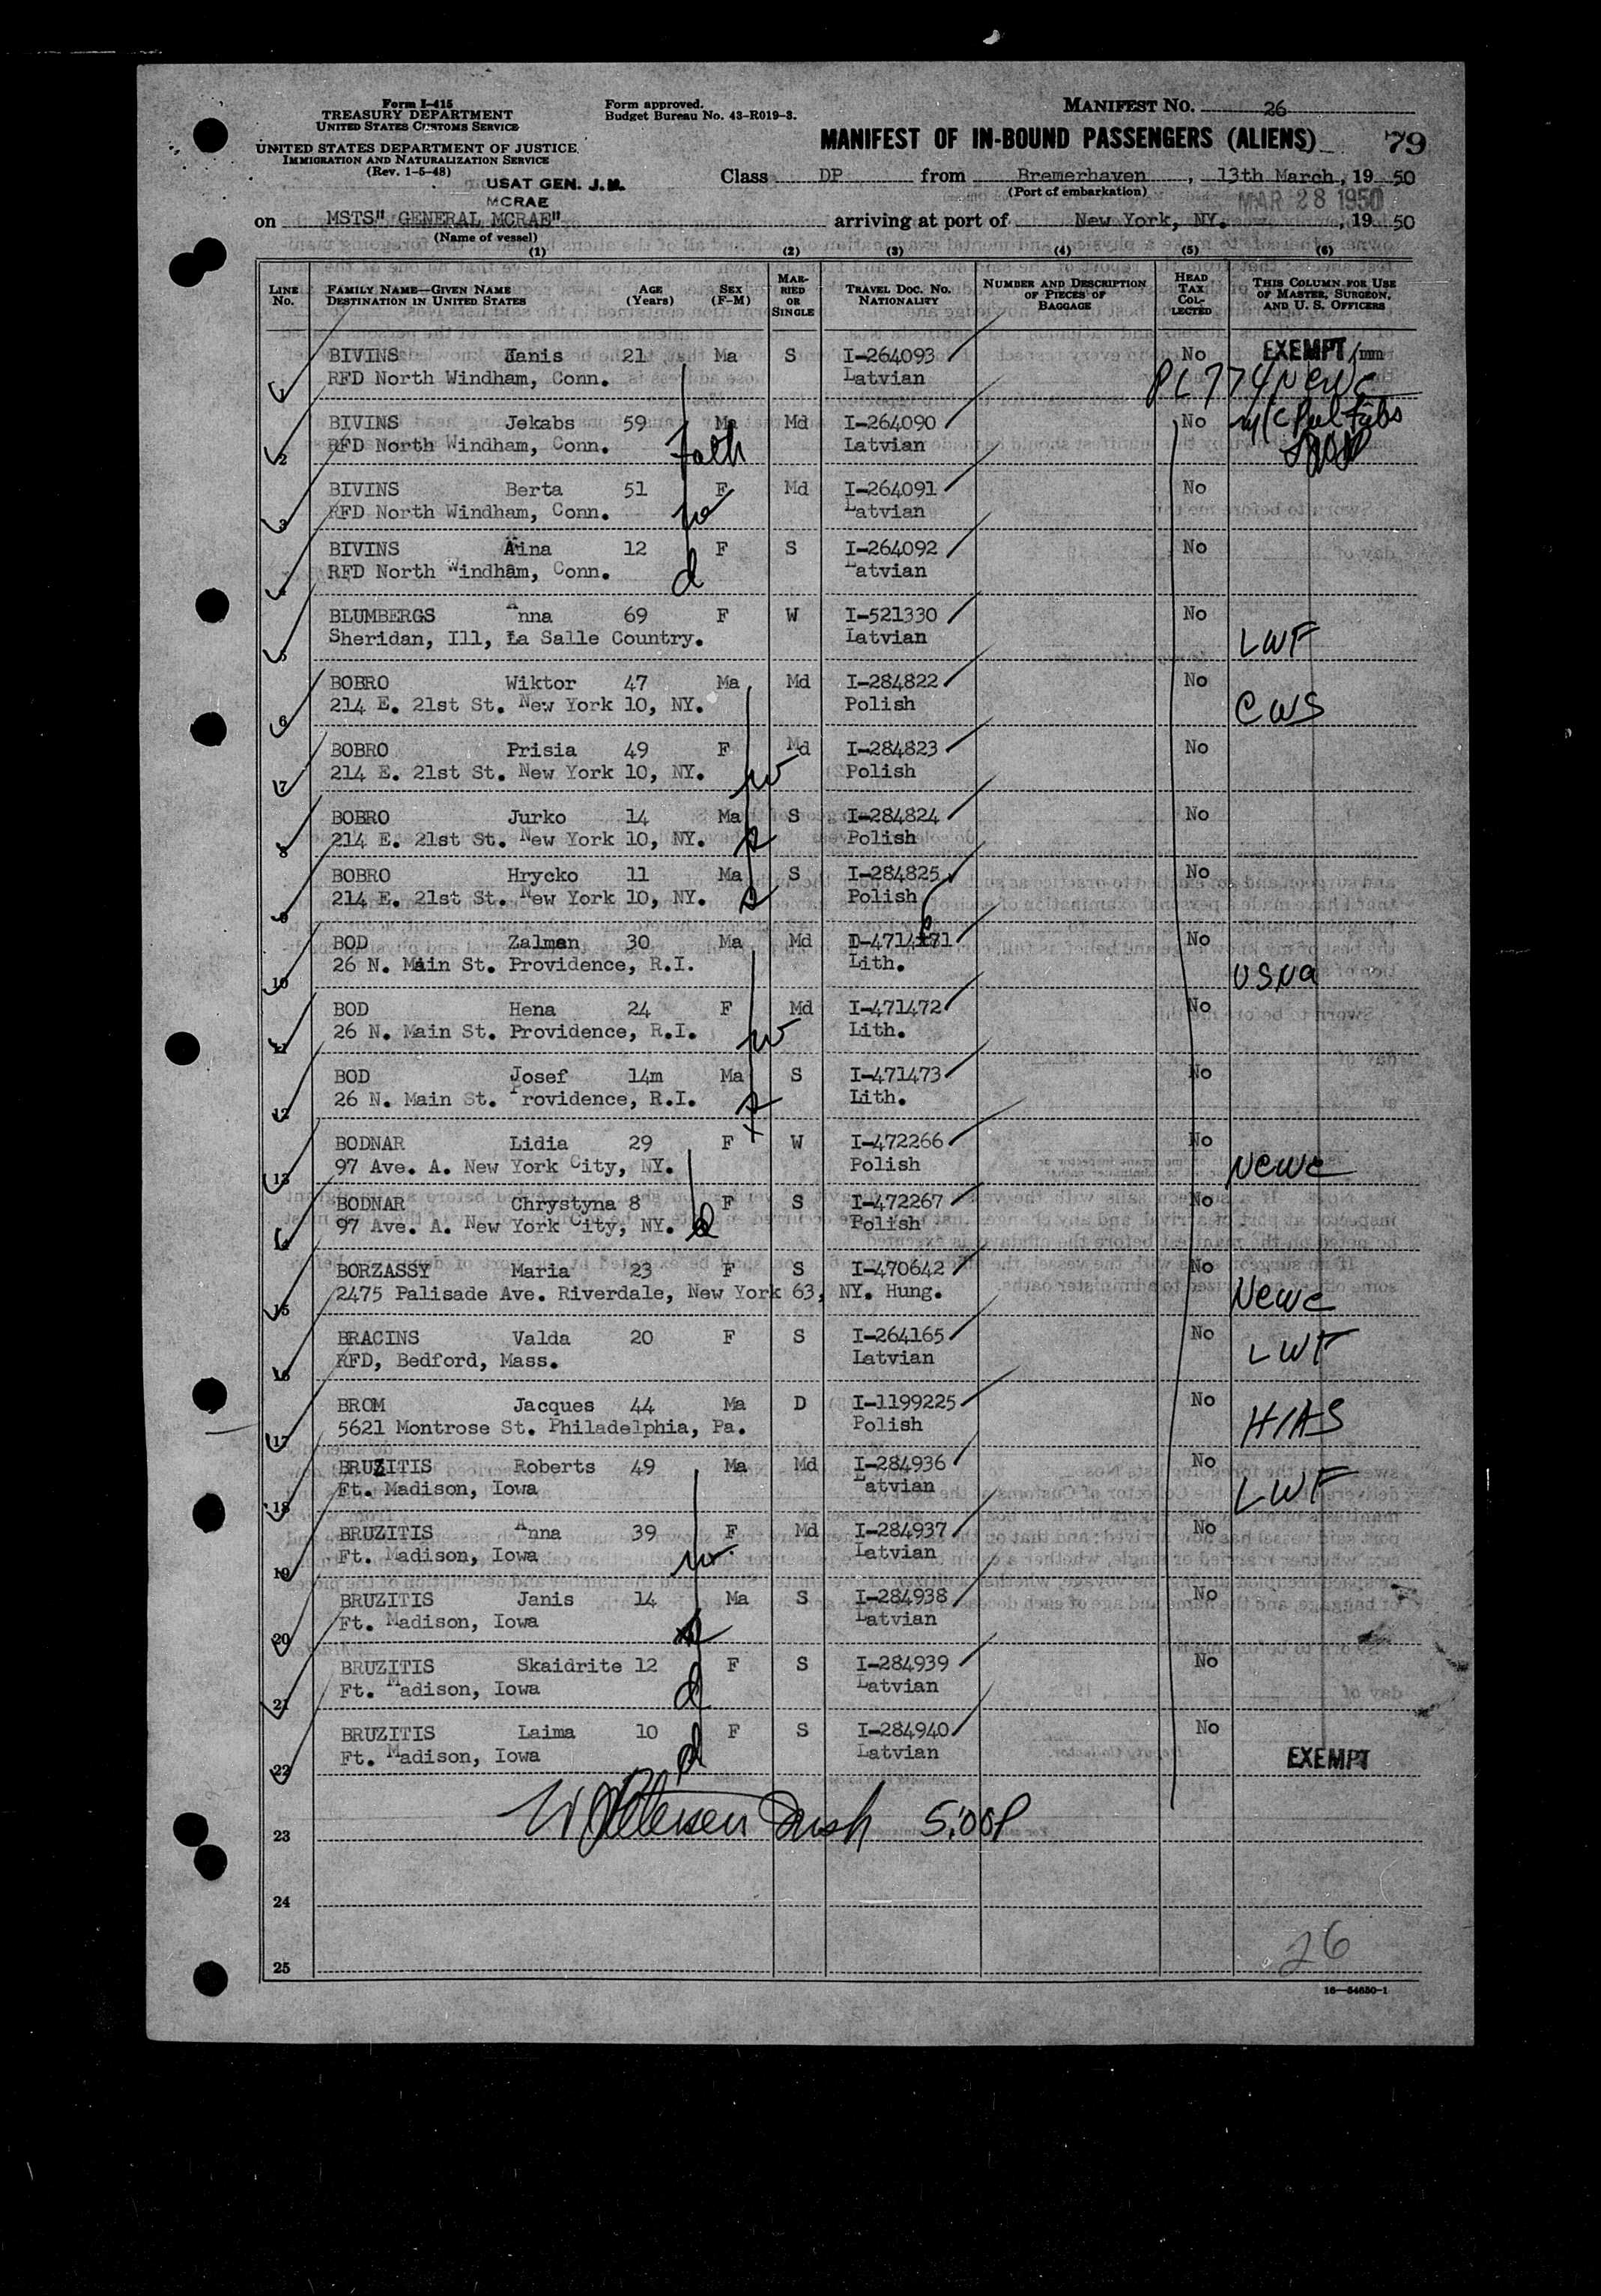 Form I-415
TREASURY DEPARTMENT
UNITED STATES CUSTOMS SERVICE
UNITED STATES DEPARTMENT OF JUSTICE
IMMIGRATION AND NATURALIZATION SERVICE
(Rev. 1-5-48)
Form approved.
Budget Bureau No. 43-R019-3.
MANIFEST No. 26
MANIFEST OF IN-BOUND PASSENGERS (ALIENS) 79
Class DP from Bremerhaven, 13th March, 1950
(Port of embarkation)
USAT GEN. J.M. MCRAE
MAR 28 1950
on MSTS" GENERAL MCRAE" arriving at port of New York, NY., 1950
(Name of vessel)
(1) (2) (3) (4) (5) (6)
LINE No. FAMILY NAME—GIVEN NAME DESTINATION IN UNITED STATES AGE (Years) SEX (F-M) MARRIED OR SINGLE TRAVEL DOC. NO. NATIONALITY NUMBER AND DESCRIPTION OF PIECES OF BAGGAGE HEAD TAX COLLECTED THIS COLUMN FOR USE OF MASTER, SURGEON, AND U. S. OFFICERS
1 BIVINS Janis 21 Ma S I-264093 No EXEMPT
RFD North Windham, Conn. Latvian PL 774 NCWC
2 BIVINS Jekabs 59 Ma Md I-264090 No
RFD North Windham, Conn. fath Latvian
3 BIVINS Berta 51 F Md I-264091 No
RFD North Windham, Conn. Latvian
4 BIVINS Aina 12 F S I-264092 No
RFD North Windham, Conn. d Latvian
5 BLUMBERGS Anna 69 F W I-521330 No
Sheridan, Ill, La Salle Country. Latvian LWF
6 BOBRO Wiktor 47 Ma Md I-284822 No
214 E. 21st St. New York 10, NY. Polish CWS
7 BOBRO Prisia 49 F Md I-284823 No
214 E. 21st St. New York 10, NY. w Polish
8 BOBRO Jurko 14 Ma S I-284824 No
214 E. 21st St. New York 10, NY. s Polish
9 BOBRO Hrycko 11 Ma S I-284825 No
214 E. 21st St. New York 10, NY. s Polish
10 BOD Zalman 30 Ma Md No
26 N. Main St. Providence, R.I. Lith. USNA
11 BOD Hena 24 F Md I-471472 No
26 N. Main St. Providence, R.I. w Lith.
12 BOD Josef 14m Ma S I-471473 No
26 N. Main St. Providence, R.I. s Lith.
13 BODNAR Lidia 29 F W I-472266 No
97 Ave. A. New York City, NY. Polish NCWC
14 BODNAR Chrystyna 8 F S I-472267 No
97 Ave. A. New York City, NY. d Polish
15 BORZASSY Maria 23 F S I-470642 No
2475 Palisade Ave. Riverdale, New York 63, NY. Hung. NCWC
16 BRACINS Valda 20 F S I-264165 No
RFD, Bedford, Mass. Latvian LWF
17 BROM Jacques 44 Ma D I-1199225 No
5621 Montrose St. Philadelphia, Pa. Polish HIAS
18 BRUZITIS Roberts 49 Ma Md I-284936 No
Ft. Madison, Iowa Latvian LWF
19 BRUZITIS Anna 39 F Md I-284937 No
Ft. Madison, Iowa w. Latvian
20 BRUZITIS Janis 14 Ma S I-284938 No
Ft. Madison, Iowa s Latvian
21 BRUZITIS Skaidrite 12 F S I-284939 No
Ft. Madison, Iowa d Latvian
22 BRUZITIS Laima 10 F S I-284940 No
Ft. Madison, Iowa d Latvian EXEMPT
23
24
25
26
16—54650-1